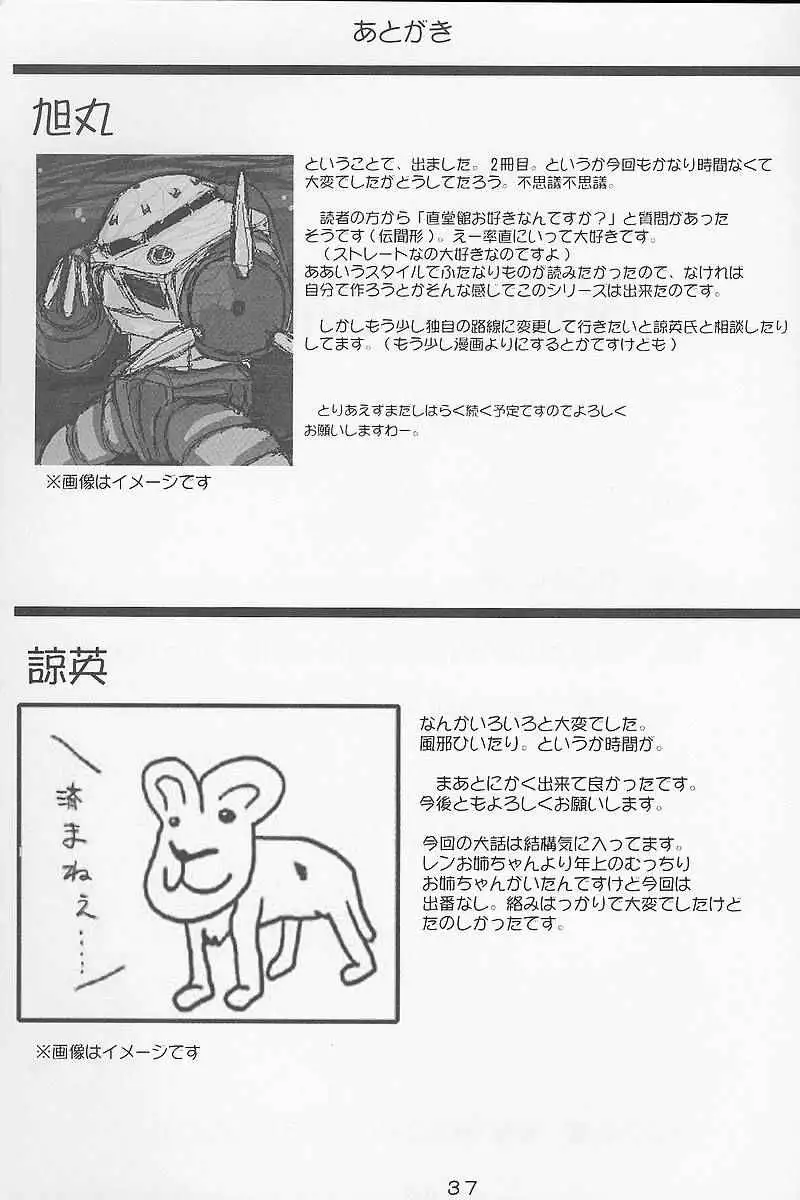 あとがき
旭丸
ということで、出ました。2冊目。というか今回もかなり時間なくて
大変でしたがどうしてだろう。不思議不思議。
読者の方から「直堂館お好きなんですか?」と質問があった
そうです(伝聞形)。えー率直にいって大好きです。
(ストレートなの大好きなのですよ)
ああいうスタイルでふたなりものが読みたかったので、なければ
自分で作ろうとかそんな感じでこのシリーズは出来たのです。
しかしもう少し独自の路線に変更して行きたいと諒英氏と相談したり
してます。(もう少し漫画よりにするとかですけども)
とりあえずまだしばらく続く予定ですのでよろしく
お願いしますわー。
※画像はイメージです
諒英
済まねえ……
なんかいろいろと大変でした。
風邪ひいたり。というか時間が。
まあとにかく出来て良かったです。
今後ともよろしくお願いします。
今回の犬話は結構気に入ってます。
レンお姉ちゃんより年上のむっちり
お姉ちゃんがいたんですけど今回は
出番なし。絡みばっかりで大変でしたけど
たのしかったです。
※画像はイメージです
37